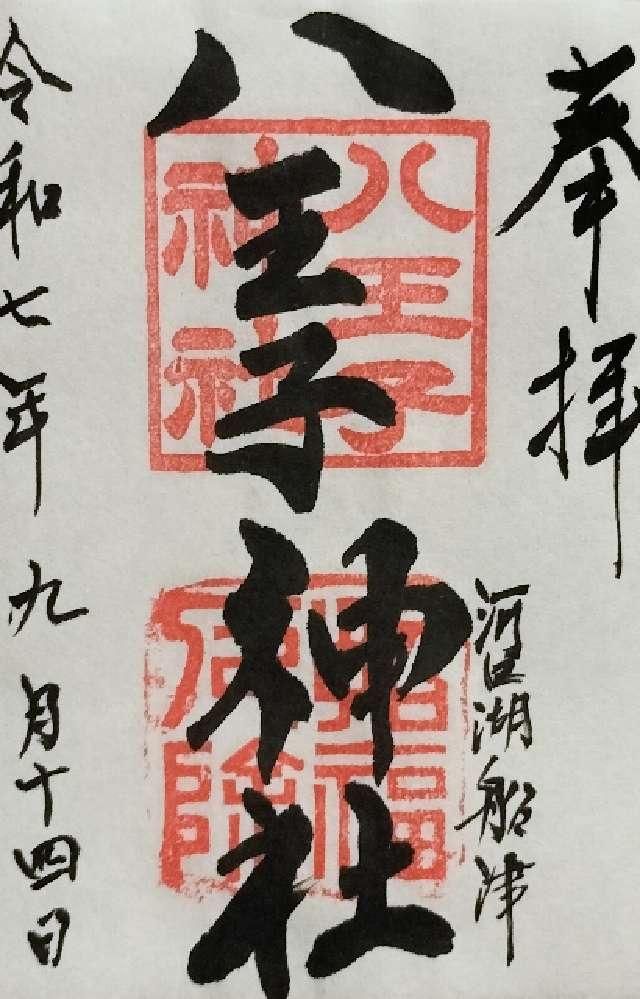 奉拝
河口湖船津
八王子神社
八王子
神社
招福
厄除
令和七年九月十四日